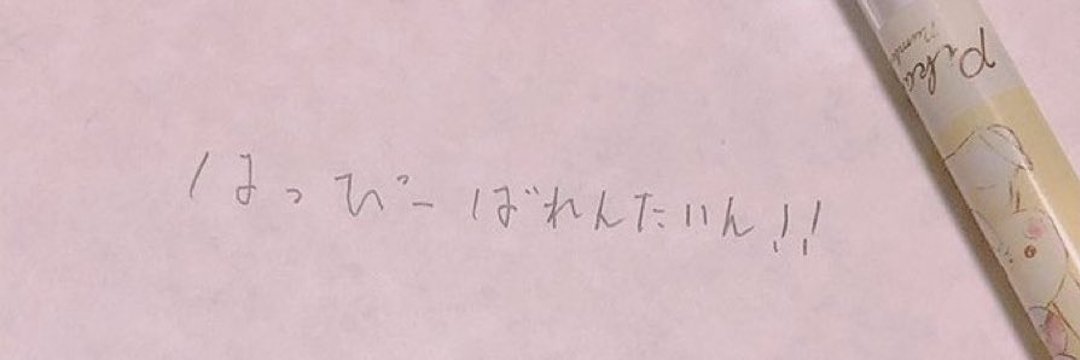 はっぴーばれんたいん!!
Pika